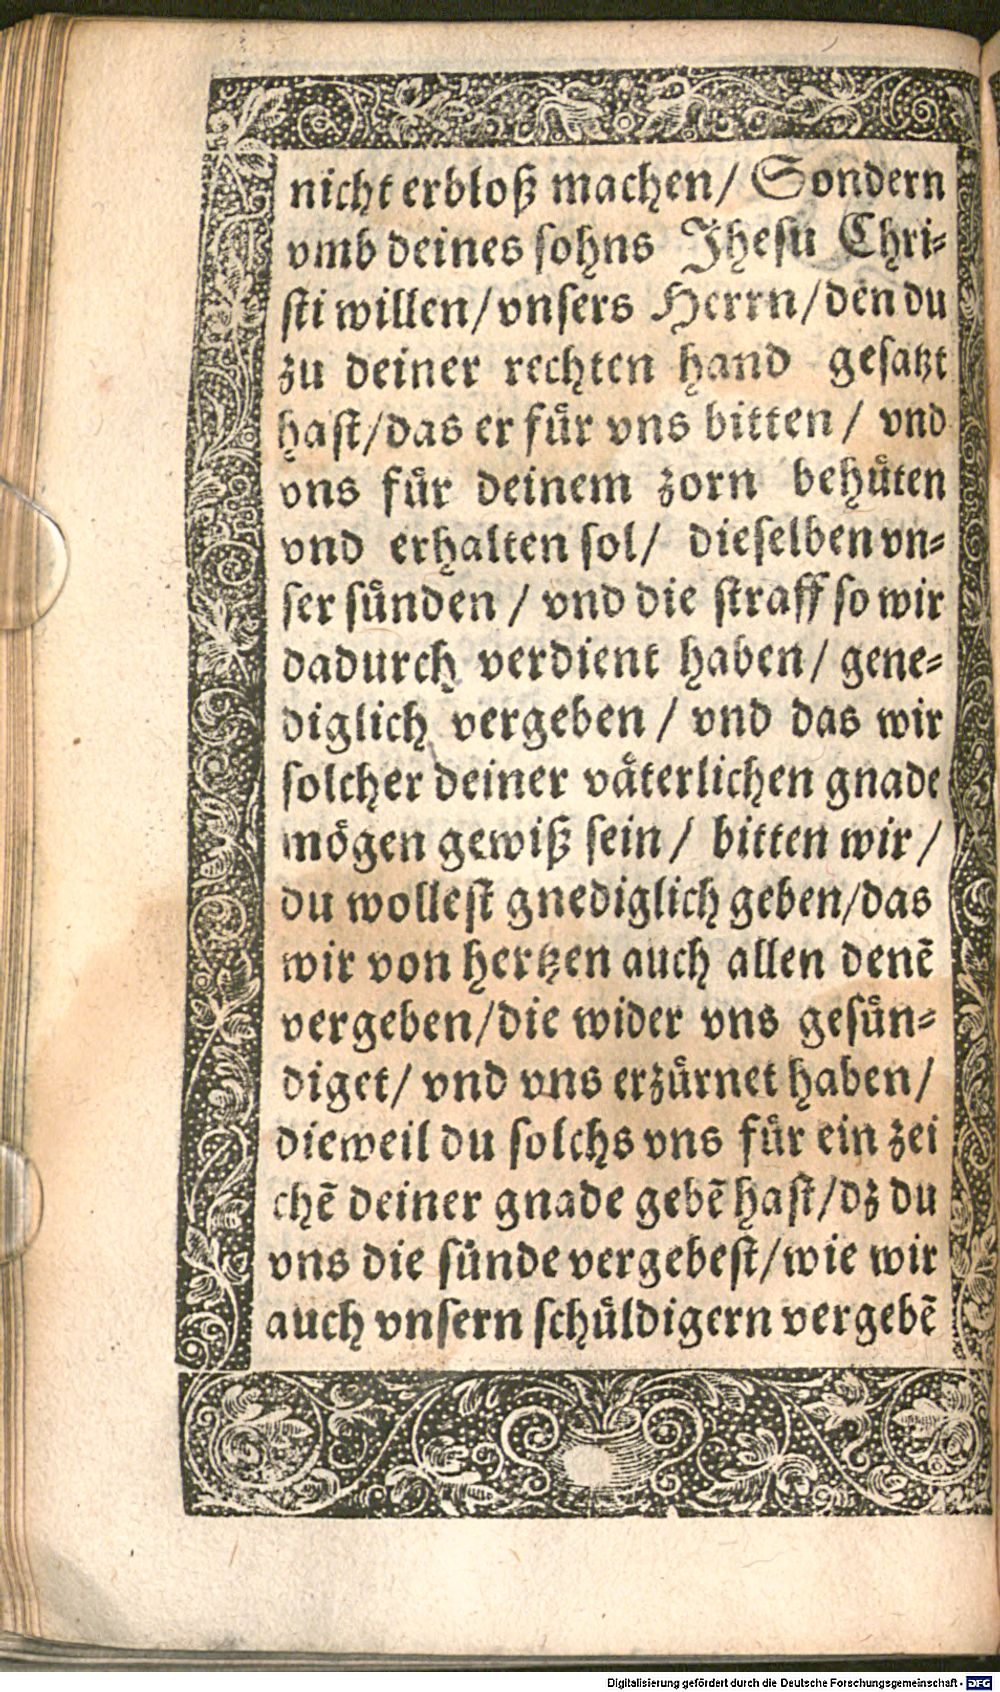 nicht erbloß machen/ Sondern
vmb deines sohns Jhesu Chri⸗
sti willen/vnsers Herrn/den du
zu deiner rechten hand gesatzt
hast/das er fuͤr vns bitten/ vnd
vns fuͤr deinem zorn behuͤten
vnd erhalten sol/ dieselben vn⸗
ser suͤnden / vnd die straff so wir
dadurch verdient haben/ gene⸗
diglich vergeben / vnd das wir
solcher deiner vaͤterlichen gnade
moͤgen gewiß sein/ bitten wir/
du wollest gnediglich geben/das
wir von hertzen auch allen denē
vergeben/die wider vns gesuͤn⸗
diget/ vnd vns erzuͤrnet haben/
dieweil du solchs vns fuͤr ein zei
chē deiner gnade gebē hast/dz du
vns die suͤnde vergebest/wie wir
auch vnsern schuͤldigern vergebē
Digitalisierung gefördert durch die Deutsche Forschungsgemeinschaft - DFG